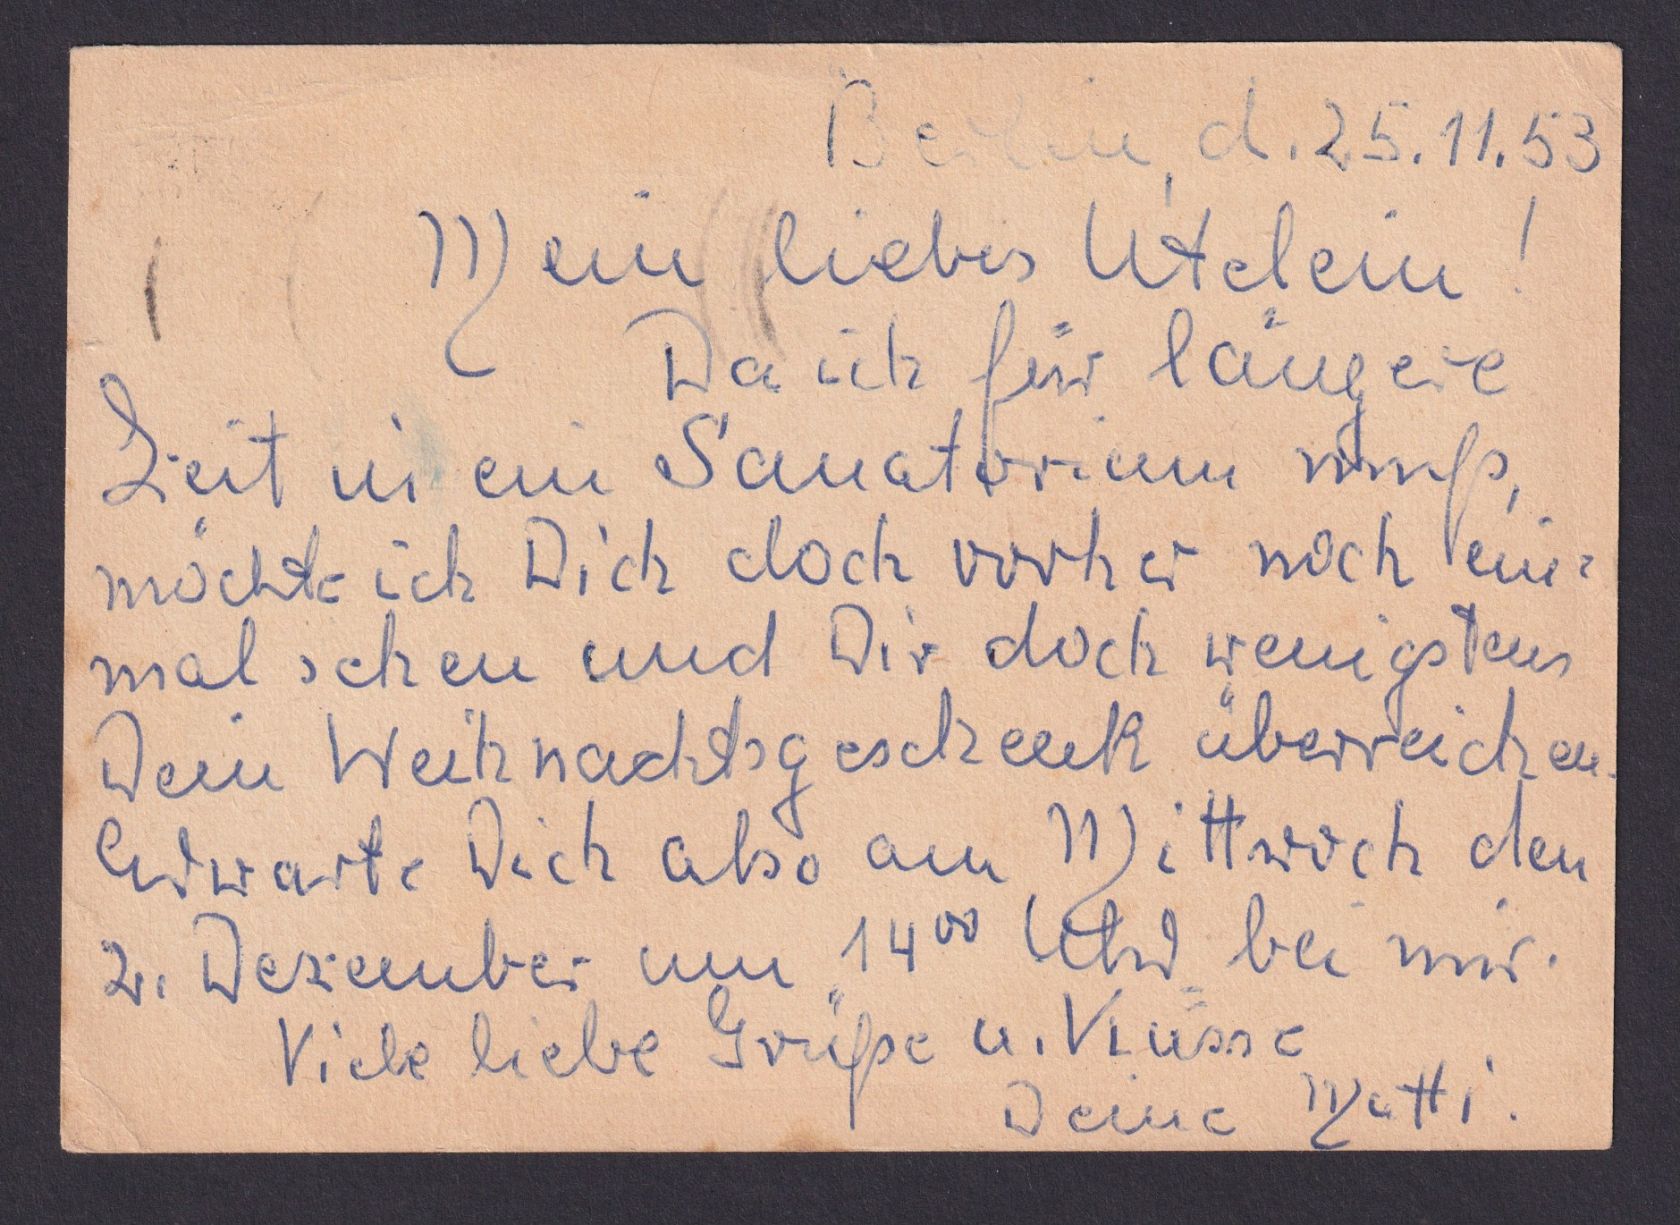 Berlin, d. 25.11.53
Mein liebes Utelein!
Da ich für längere
Zeit in ein Sanatorium muß,
möchte ich Dich doch vorher noch ein-
mal sehen und Dir doch wenigstens
Dein Weihnachtsgeschenk überreichen.
Erwarte Dich also am Mittwoch den
2. Dezember um 14⁰⁰ Uhr bei mir.
Viele liebe Grüße u. Küsse
Deine Mutti.